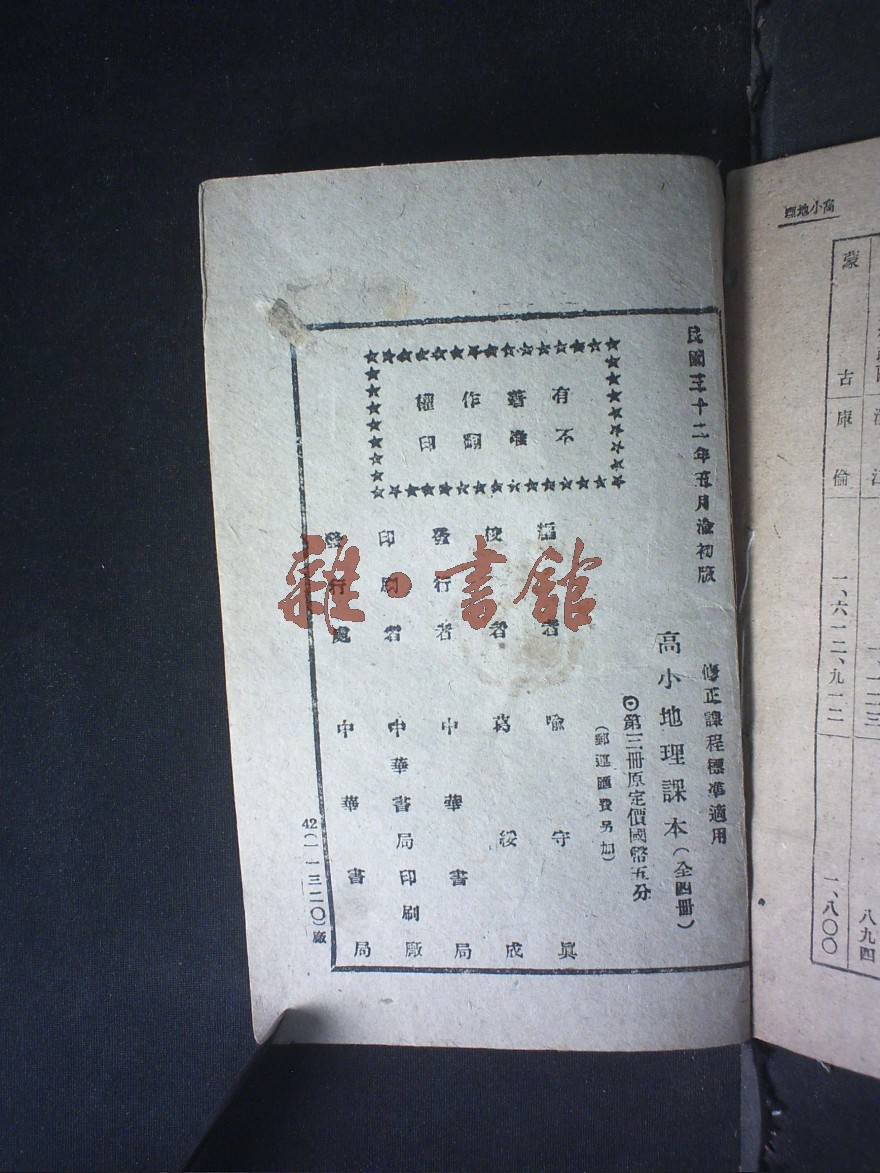 民國三十二年五月渝初版
修正課程標準適用
高小地理課本(全四冊)
◎第三冊原定價國幣五分
(郵運匯費另加)
有著作權
不准翻印
編者 喻守真
校者 葛綏成
發行者 中華書局
印刷者 中華書局印刷廠
發行處 中華書局
42(一一三二〇)廠
雜·書館
高小地理
蒙古
庫倫
一、六一二、九一二
一、八〇〇
八九四